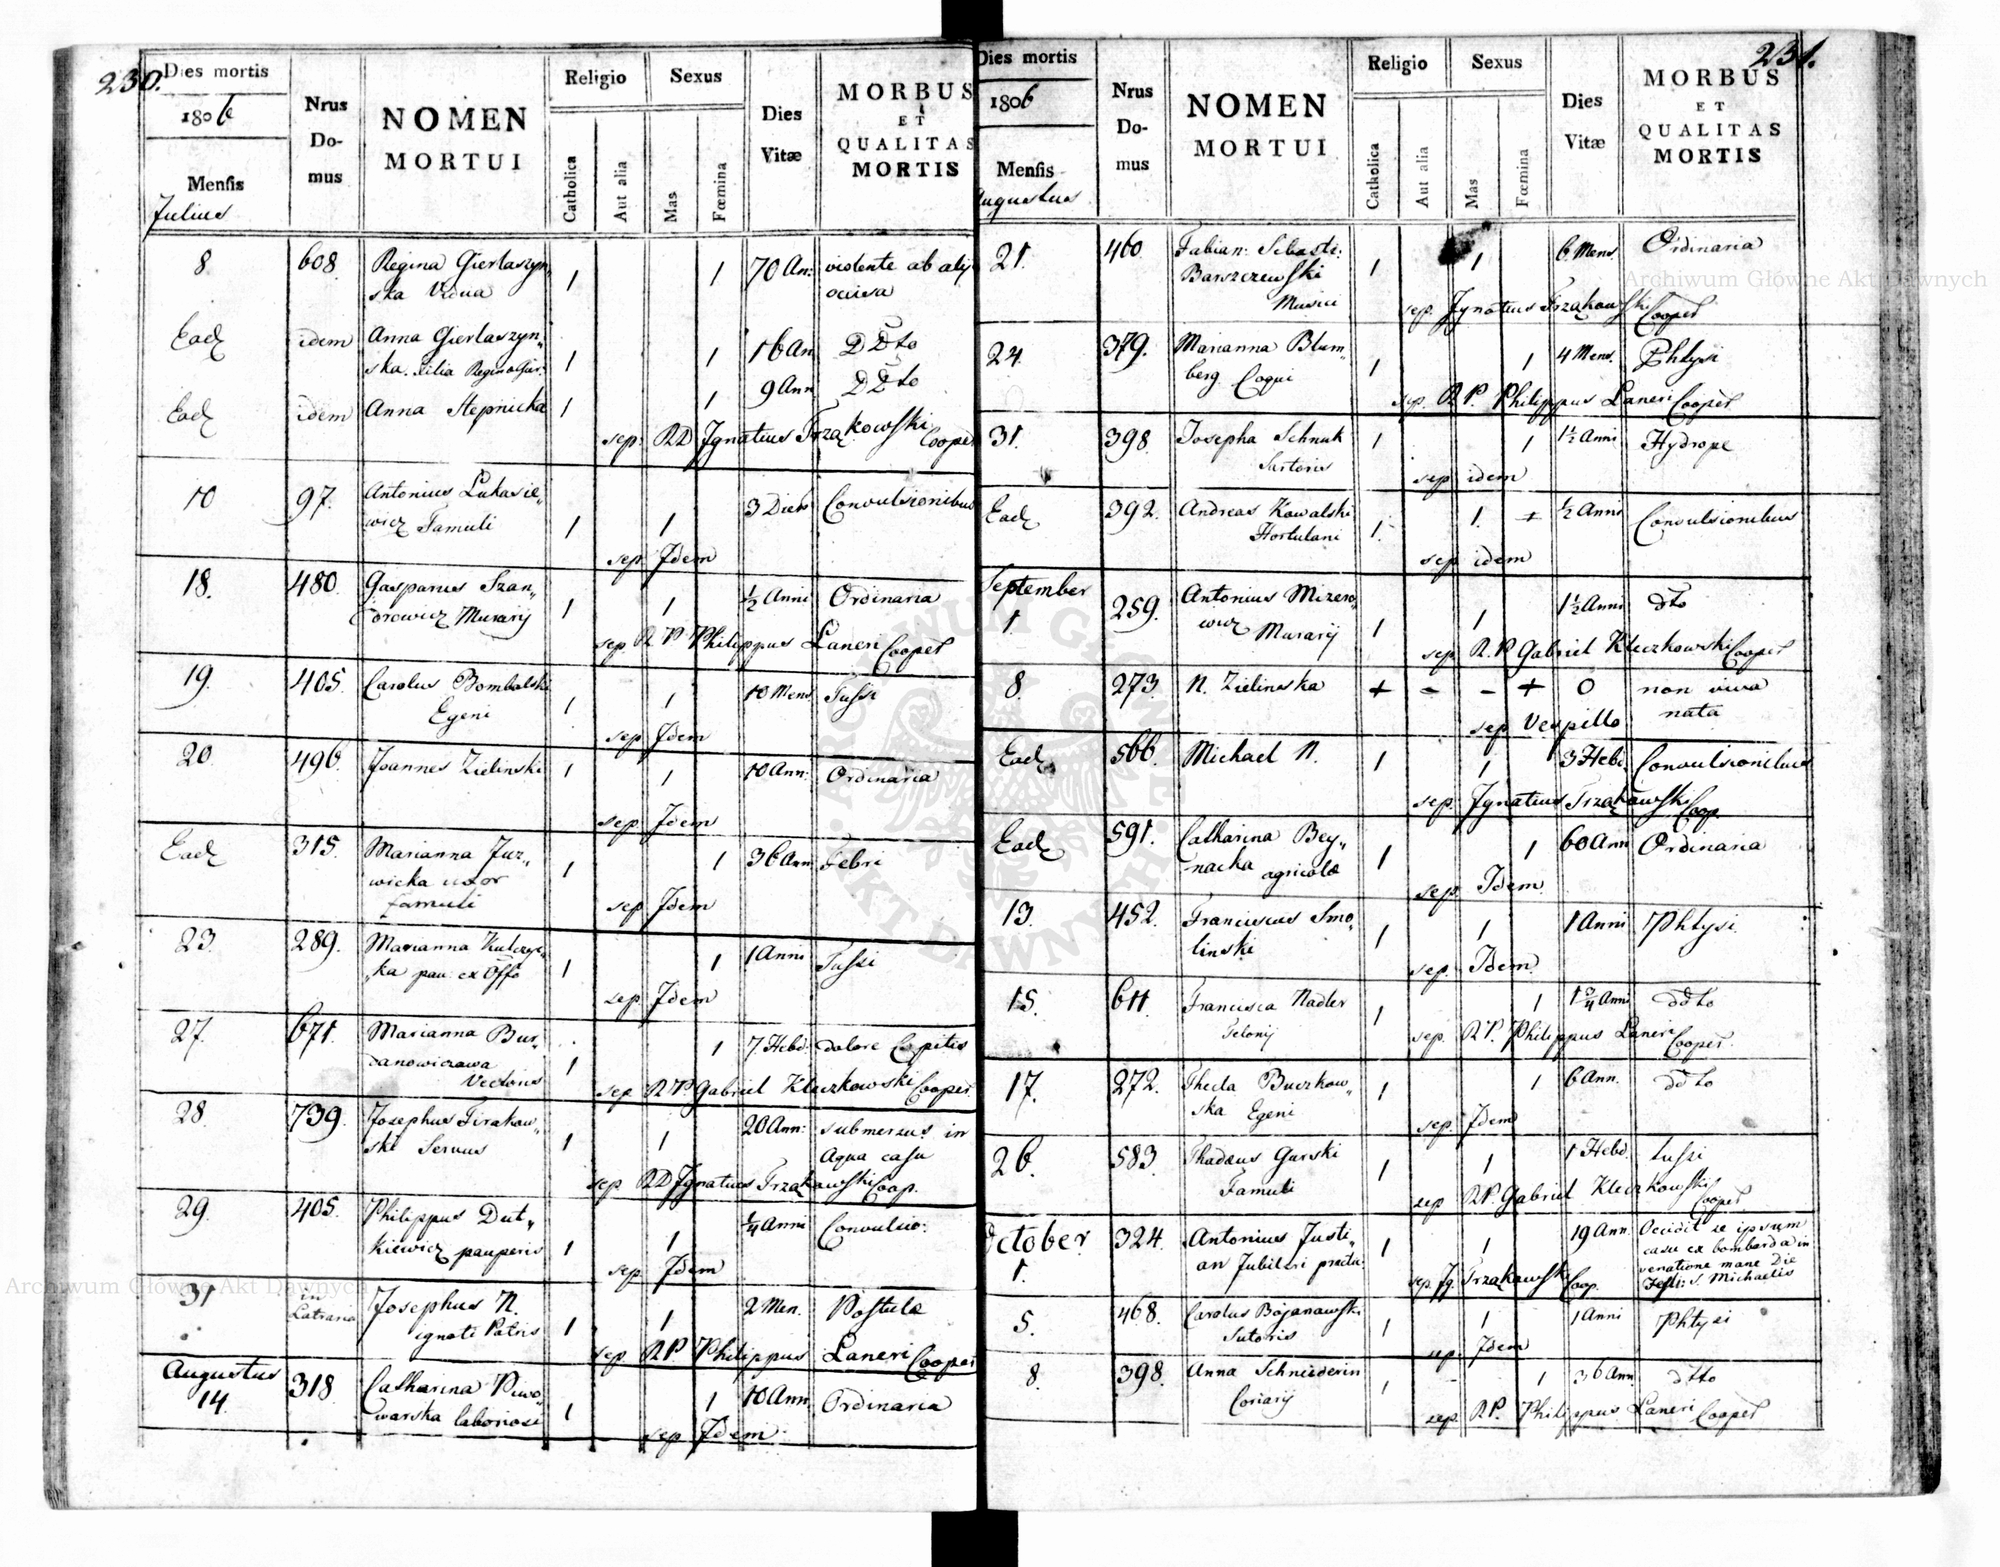 230.
Dies mortis
1806
Mensis
Julius
Nrus
Do-
mus
NOMEN
MORTUI
Religio
Catholica
Aut alia
Sexus
Mas
Fœmina
Dies
Vitæ
MORBUS
ET
QUALITAS
MORTIS
8 608 Regina Gierlaszyn„ 1 1 70 An: violente ab alijs
ska Vidua occisa
Ead idem Anna Gierlaszyn„ 1 1 16 An DDto
ska. filia Regina Gier:
Ead idem Anna Stepnicka 1 1 9 Ann DDto
sep: RD Jgnatius Trzakowski Cooper
10 97. Antonius Lukasie„ 1 1 3 Dieb Convulsionibus
wicz Famuli
sep Jdem
18. 480. Gasparus Szan„ 1 1 ½ Anni Ordinaria
dorewicz Murarij
sep R P Philippus Laneri Cooper
19. 405. Carolus Bombalski 1 1 10 Mens Tussi
Egeni
sep Jdem
20. 496. Joannes Zielinski 1 1 10 Ann: Ordinaria
sep Jdem
Ead 315. Marianna Jur„ 1 1 36 Ann Febri
wicka uxor
famuli
sep Jdem
23. 289. Marianna Kulczyc„ 1 1 1 Anni Tussi
„ka pau: ex Offo
sep Jdem
27. 671. Marianna Bur„ 1 1 7. Hebd: dolore Capitis
danowiczowa
Vectoris
sep R P. Gabriel Kleczkowski Cooper
28. 739. Josephus Tirakow„ 1 1 20 Ann: submersus in
ski Servus Aqua casu
sep RD Jgnatius Trzakowski Coop.
29. 405. Philippus Dut„ 1 1 ¼ Anni Convulsio:
kiewicz pauperis
sep Jdem
31 in Latraria Josephus N. 1 1 2 Men. Postula
ignoti Patris
sep RP. Philippus Laneri Cooper
Augustus
14. 318. Catharina Piwo„ 1 1 10 Ann Ordinaria
warska laboriosi
sep Jdem
231.
Dies mortis
1806
Mensis
Augustus
Nrus
Do-
mus
NOMEN
MORTUI
Religio
Catholica
Aut alia
Sexus
Mas
Fœmina
Dies
Vitæ
MORBUS
ET
QUALITAS
MORTIS
21. 460. Fabian: Sebasti: 1 1 6 Mens. Ordinaria
Barszczewski
Musici
sep. Jgnatius Trzakowski Cooper
24. 379. Marianna Blum„ 1 1 4 Mens. Phtysi
berg Coqui
sep. R P. Philippus Laneri Cooper
31. 398. Josepha Schnuk 1 1 1½ Anni Hydrope
Sartoris
sep idem
Ead 392. Andreas Kowalski 1. 1. + ½ Anni Convulsionibus
Hortulani
sep idem
September
1. 259. Antonius Mizero„ 1 1 1½ Anni dto
wicz Murarij
sep R.P Gabriel Kleczkowski Cooper
8. 273. N. Zielinska + - - + 0 non viva
nata
sep Vespillo
Ead 566. Michael N. 1 1 3 Hebd. Convulsionibus
sep. Jgnatius Trzakowski Coop.
Ead 591. Catharina Bey„ 1 1 60 Ann Ordinaria
nacka agricolæ
sep Jdem
13. 452. Franciscus Smo„ 1 1 1 Anni Phtysi
linski
sep. Jdem
15. 611. Francisca Nadler 1 1 1¾ Anni ddto
Telonij
sep. RP. Philippus Laneri Cooper.
17. 272. Thecla Buczkow„ 1 1 6 Ann. ddto
ska Egeni
sep. Jdem
26. 583. Thadæus Gurski 1 1 1 Hebd. tussi
Famuli
sep RP. Gabriel Kleczkowski Cooper
October
1. 324. Antonius Justi„ 1 1 19 Ann. Occidit se ipsum
an Jubileri casu ex bombarda in
venatione mane Die
Festi: S. Michaelis
sep. Jg. Trzakowski Coop.
5. 468. Carolus Bojanowski 1 1 1 Anni Phtysi
Sutoris
sep. Jdem
8. 398. Anna Schniederin 1 1 36 Ann. dtto
Coriarij
sep. RP. Philippus Laneri Cooper
Archiwum Główne Akt Dawnych
Archiwum Główne Akt Dawnych
ARCHIWUM GŁÓWNE AKT DAWNYCH